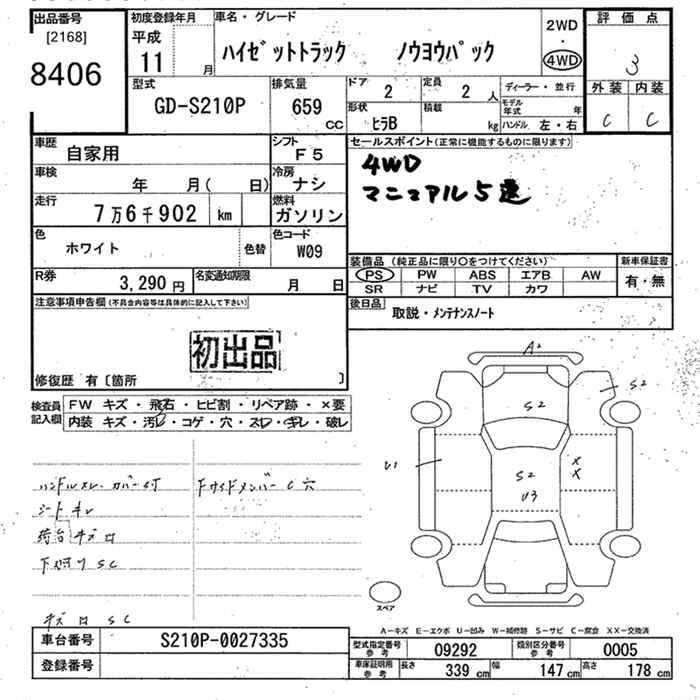 出品番号
[2168]
8406
初度登録年月
平成
11 月
車名・グレード
ハイゼットトラック ノウヨウパック
2WD
・
4WD
評価点
3
外装 内装
C C
型式
GD-S210P
排気量
659
CC
ドア
2
定員
2 人
形状
ヒラB
積載
kg
ディーラー・並行
モデル年式 年
ハンドル 左・右
車歴
自家用
シフト
F5
車検
年 月( 日)
冷房
ナシ
走行
7万6千902 km
燃料
ガソリン
色
ホワイト
色替
色コード
W09
R券
3,290 円
名変通知期限
月 日
セールスポイント(正常に機能するものに限ります)
4WD
マニュアル5速
装備品(純正品に限り○をつけてください)
PS PW ABS エアB AW
SR ナビ TV カワ
新車保証書
有・無
後日品
取説・メンテナンスノート
注意事項申告欄(不具合内容等は具体的に記入して下さい)
初出品
修復歴 有〔箇所 〕
検査員記入欄
FW キズ・飛石・ヒビ割・リペア跡・×要
内装 キズ・汚レ・コゲ・穴・スレ・キレ・破レ
ハンドルスレ カバーST
シートキレ
荷台キズロ
下廻りSC
キズロ SC
A2
S2
S2
U1
S2
U3
X
X
スペア
A-キズ E-エクボ U-凹み W-補修跡 S-サビ C-腐食 XX-交換済
車台番号
S210P-0027335
登録番号
型式指定番号
参考
09292
類別区分番号
参考
0005
車庫証明用
参考
長さ
339 cm
幅
147 cm
高さ
178 cm